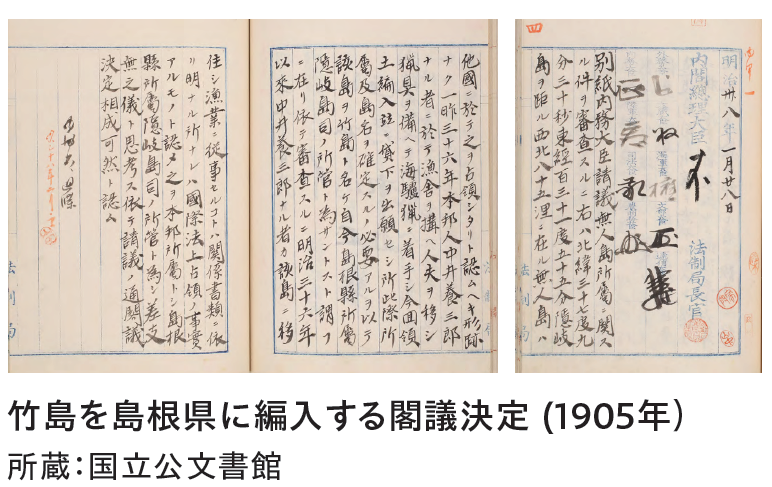 四
明治卅八年一月廿八日
内閣総理大臣
法制局長官
別紙内務大臣請議無人島所属ニ関ス
ル件ヲ審査スルニ右ハ北緯三十七度九
分三十秒東経百三十一度五十五分隠岐
島ヲ距ル西北八十五浬ニ在ル無人島ハ
他國ニ於テ之ヲ占領シタリト認ムヘキ形跡
ナク一昨三十六年本邦人中井養三郎
ナル者ニ於テ漁舎ヲ構ヘ人夫ヲ移シ
猟具ヲ備ヘテ海驢猟ニ着手シ今回領
土編入並ニ貸下ヲ出願セシ所此際所
属及島名ヲ確定スルノ必要アルヲ以テ
該島ヲ竹島ト名ケ自今島根縣所属
隠岐島司ノ所管ト為サントスト謂フ
ニ在リ依テ審査スルニ明治三十六年
以来中井養三郎ナル者カ該島ニ移
住シ漁業ニ従事セルコトハ関係書類ニ依
リ明ナル所ナレハ國際法上占領ノ事實
アルモノト認メ之ヲ本邦所属トシ島根
縣所属隠岐島司ノ所管ト為シ差支
無之儀ト思考ス依テ請議ノ通閣議
決定相成可然ト認ム
法制局
竹島を島根県に編入する閣議決定 (1905年)
所蔵：国立公文書館